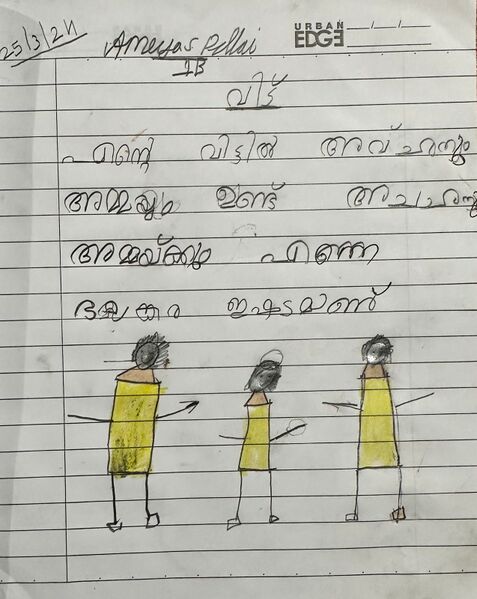 25/3/24
Ameyas Pillai
URBAN EDGE
1B
വിട്
എന്റെ വിട്ടിൽ അവ്ചനും
അമ്മയും ഉണ്ട് അചചനു
അമ്മയ്ക്കും എന്നെ
ഭയകര ഇഷടമണ്